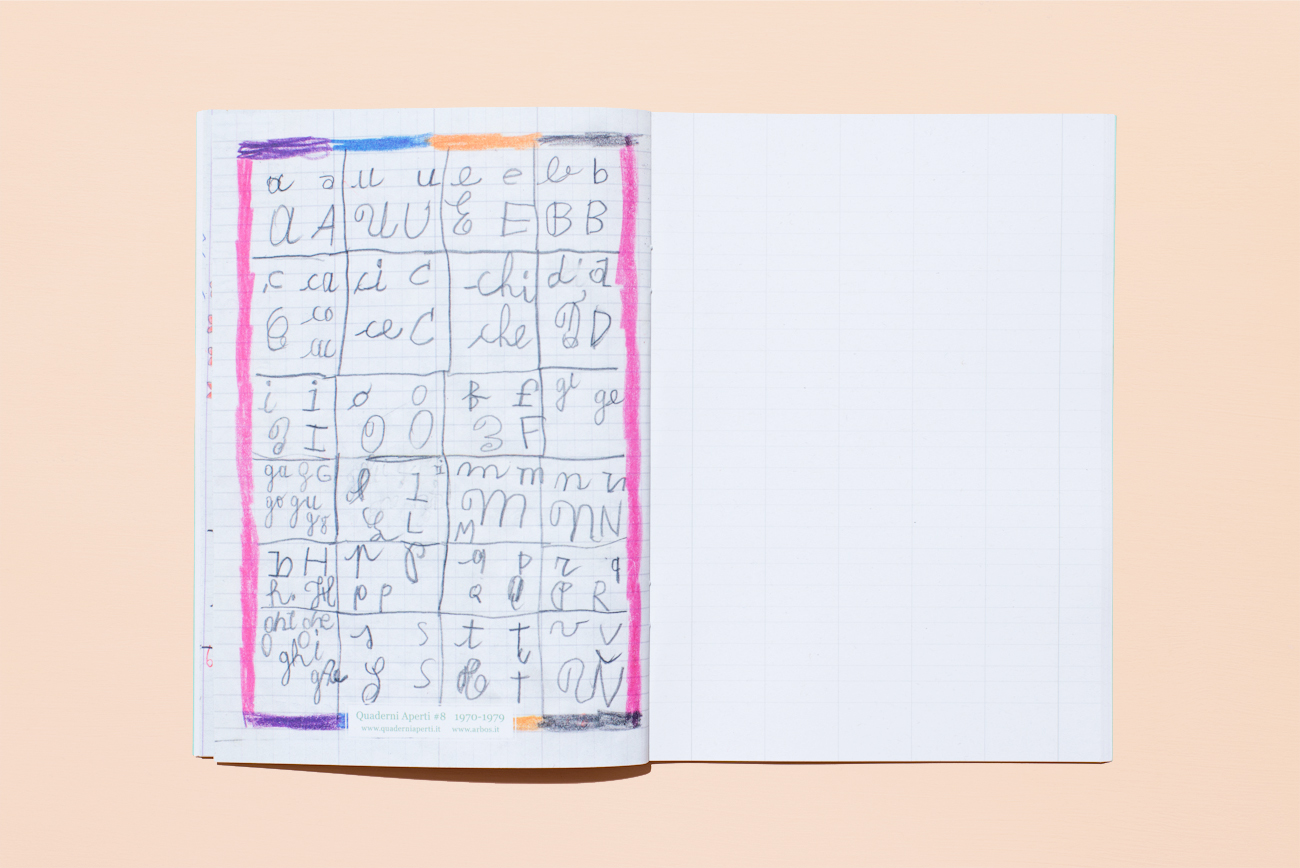 a a u u e e b b
A A U U E E B B
c ca ci C chi d d
C co ce C che D D
cu
i i o o f f gi ge
I I O O F F
ga G G l I m m n n
go gu L L M M N N
ge
H p p q p r q
h. H p p Q R R
ghi che s s t t v v
O O
ghi
ghe S S t V V
Quaderni Aperti #8 1970-1979
www.quaderniaperti.it www.arbos.it